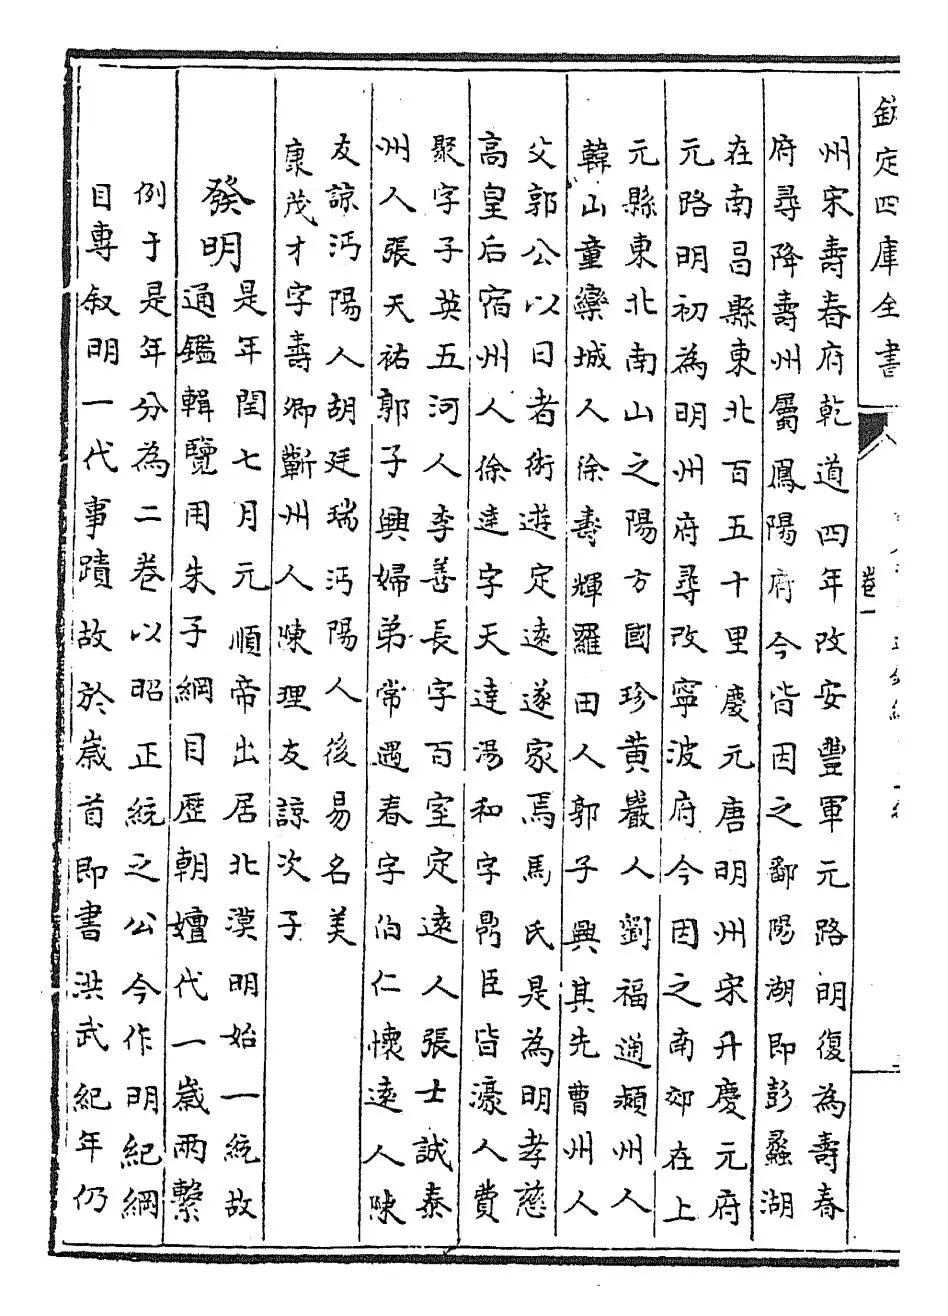 欽定四庫全書
卷一
州宋壽春府乾道四年改安豐軍元路明復為壽春
府尋降壽州屬鳳陽府今皆因之鄱陽湖即彭蠡湖
在南昌縣東北百五十里慶元唐明州宋升慶元府
元路明初為明州府尋改寧波府今因之南郊在上
元縣東北南山之陽方國珍黃巖人劉福通潁州人
韓山童欒城人徐壽輝羅田人郭子興其先曹州人
父郭公以日者術遊定遠遂家焉馬氏是為明孝慈
高皇后宿州人徐達字天達湯和字鼎臣皆濠人費
聚字子英五河人李善長字百室定遠人張士誠泰
州人張天祐郭子興婦弟常遇春字伯仁懷遠人陳
友諒沔陽人胡廷瑞沔陽人後易名美
康茂才字壽卿蘄州人陳理友諒次子
發明
是年閏七月元順帝出居北漠明始一統故
通鑑輯覽用朱子綱目歷朝嬗代一歲兩繫
例于是年分為二卷以昭正統之公今作明紀綱
目專叙明一代事蹟故於歲首即書洪武紀年仍